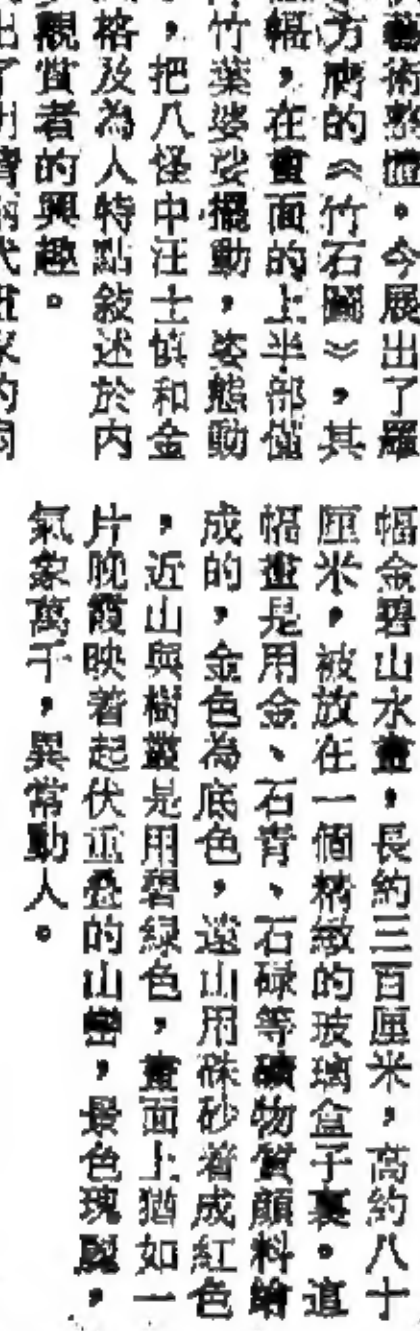 藝術整體。今展出了羅
方膺的《竹石圖》，其
幅，在畫面的上半部僅
竹葉婆娑擺動，姿態動
，把八怪中汪士慎和金
格及為人特點敘述於內
觀賞者的興趣。
幅金碧山水畫，長約三百厘米，高約八十
厘米，被放在一個精緻的玻璃盒子裏。這
幅畫是用金、石青、石碌等礦物質顏料繪
成的，金色為底色，遠山用硃砂着成紅色
，近山與樹叢是用碧綠色，畫面上猶如一
片晚霞映着起伏重叠的山巒，景色瑰麗，
氣象萬千，異常動人。